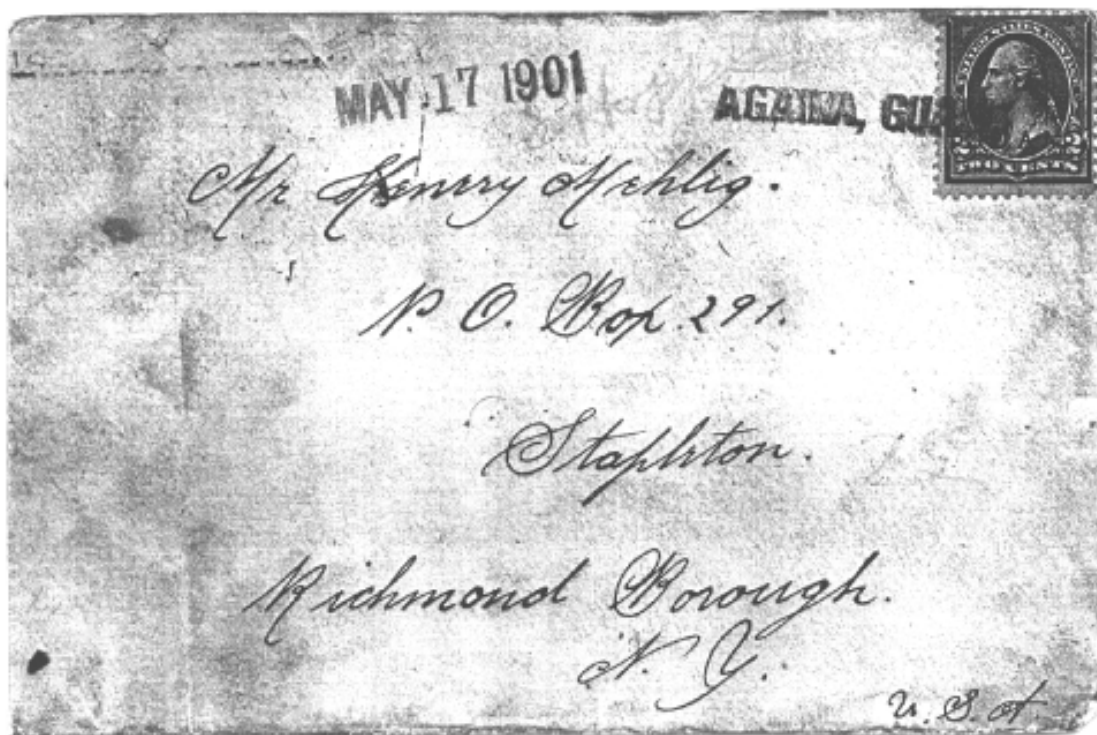 MAY 17 1901
AGAINA, GUA
Mr Henery Mehlig.
P. O. Box 291.
Stapleton.
Richmond Borough.
N. Y.
U. S. A